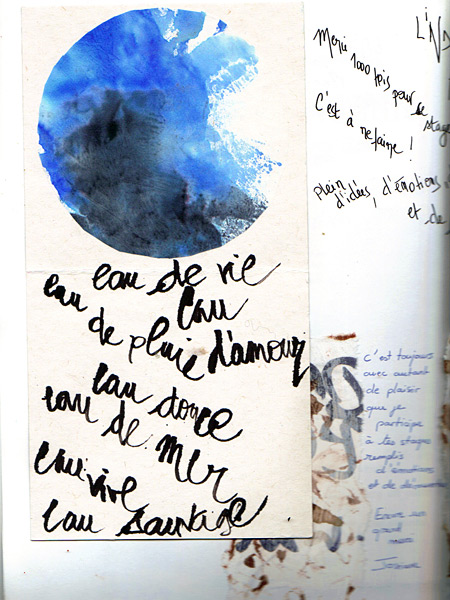 eau de vie
eau
eau d'amour
de pluie
eau douce
eau de mer
eau vive
eau sauvage
L'INS
Merci 1000 fois pour ce stage
C'est à refaire !
plein d'idées, d'émotions,
et de
c'est toujours
avec autant
de plaisir
que je
participe
à tes stages
remplis
d'émotions
et de découvertes
Encore un
grand
merci